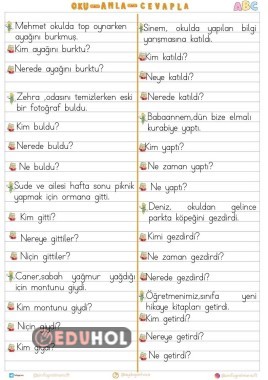 OKU ANLA CEVAPLA
ABC
Mehmet okulda top oynarken
ayağını burkmuş.
Kim ayağını burktu?
Nerede ayağını burktu?
Zehra ,odasını temizlerken eski
bir fotoğraf buldu.
Kim buldu?
Nerede buldu?
Ne buldu?
Sude ve ailesi hafta sonu piknik
yapmak için ormana gitti.
Kim gitti?
Nereye gittiler?
Niçin gittiler?
Caner,sabah yağmur yağdığı
için montunu giydi.
Kim montunu giydi?
Niçin giydi?
Kim giydi?
Sinem, okulda yapılan bilgi
yarışmasına katıldı.
Kim katıldı?
Neye katıldı?
Nerede katıldı?
Babaannem,dün bize elmalı
kurabiye yaptı.
Kim yaptı?
Ne zaman yaptı?
Ne yaptı?
Deniz, okuldan gelince
parkta köpeğini gezdirdi.
Kimi gezdirdi?
Ne zaman gezdirdi?
Nerede gezdirdi?
Öğretmenimiz,sınıfa yeni
hikaye kitapları getirdi.
Kim getirdi?
Nereye getirdi?
Ne getirdi?
EDUHOL